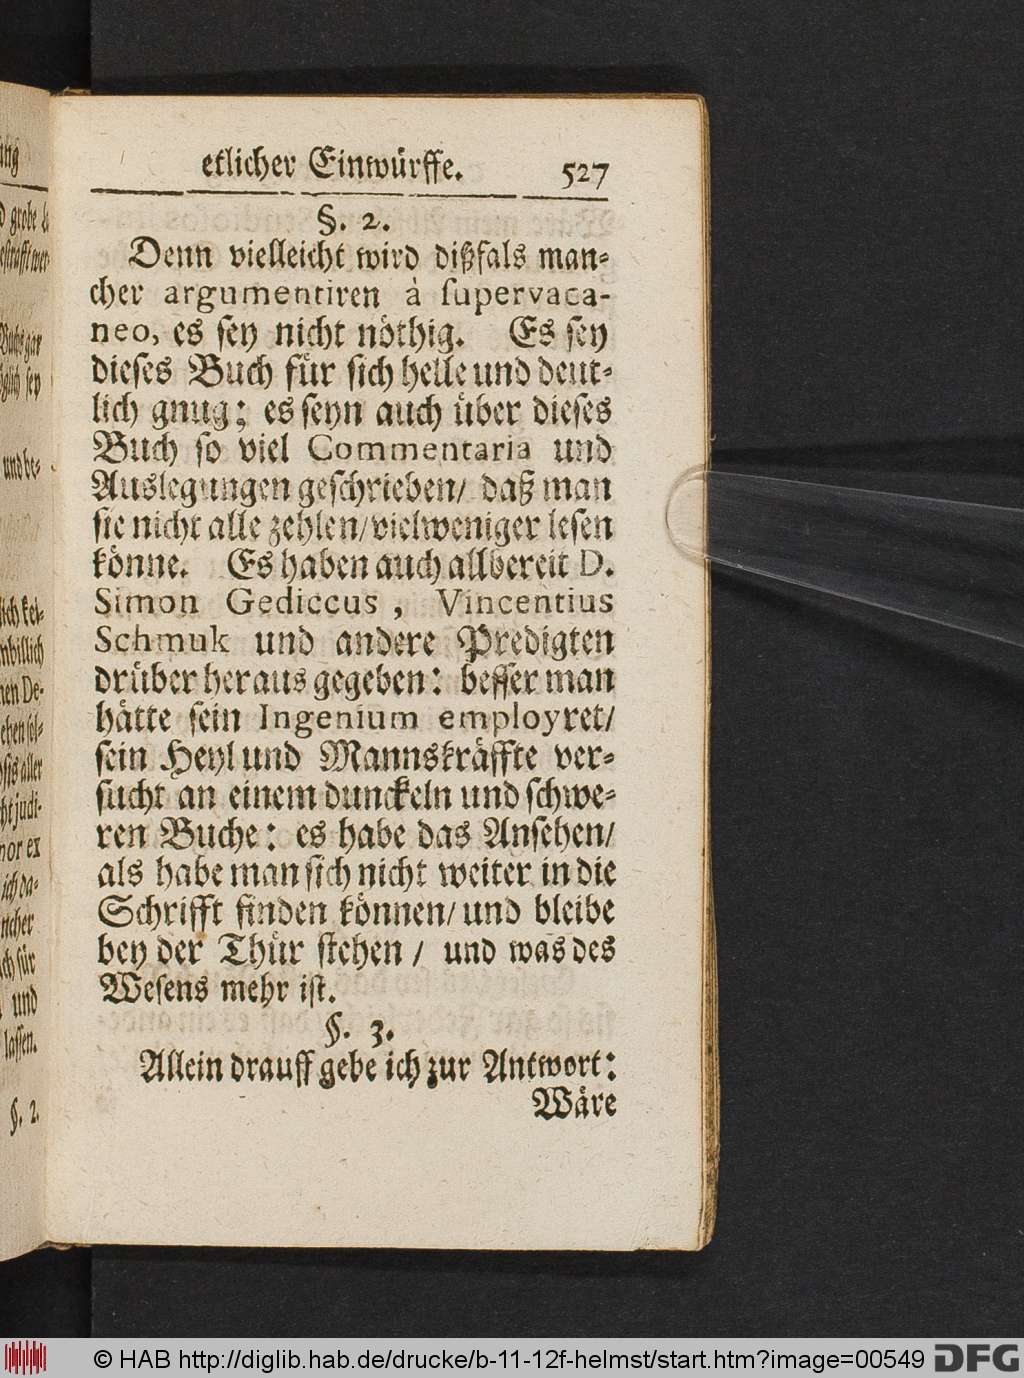 etlicher Einwürffe. 527
§. 2.
Denn vielleicht wird dißfals man-
cher argumentiren à supervaca-
neo, es sey nicht nöthig. Es sey
dieses Buch für sich helle und deut-
lich gnug; es seyn auch über dieses
Buch so viel Commentaria und
Auslegungen geschrieben/ daß man
sie nicht alle zehlen/ vielweniger lesen
könne. Es haben auch allbereit D.
Simon Gediccus, Vincentius
Schmuk und andere Predigten
drüber heraus gegeben: besser man
hätte sein Ingenium employret/
sein Heyl und Mannskräffte ver-
sucht an einem dunckeln und schwe-
ren Buche: es habe das Ansehen/
als habe man sich nicht weiter in die
Schrifft finden können/ und bleibe
bey der Thür stehen/ und was des
Wesens mehr ist.
§. 3.
Allein drauff gebe ich zur Antwort:
Wäre
d grobe
und be-
lich kei-
nbillich
nen De-
ehen sol-
aller
judi-
nor ex
ich da-
für
und
lassen.
§. 2.
© HAB http://diglib.hab.de/drucke/b-11-12f-helmst/start.htm?image=00549 DFG